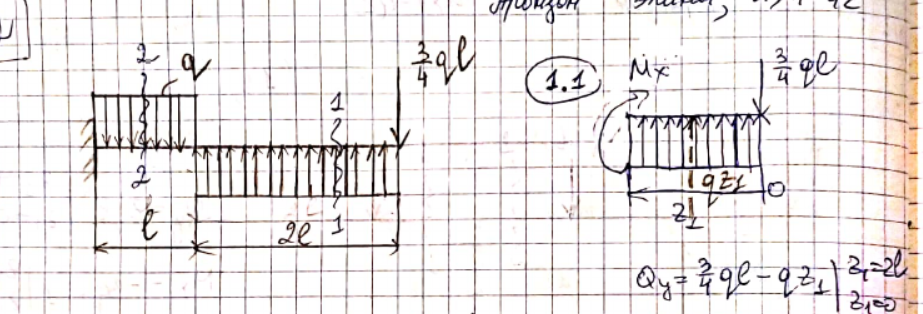 2
q
3/4 ql
1
2
1
l
2l
1.1
Mx
3/4 ql
qz₁
0
z₁
Qy = 3/4 ql − qz₁ | z₁=2l
z₁=0